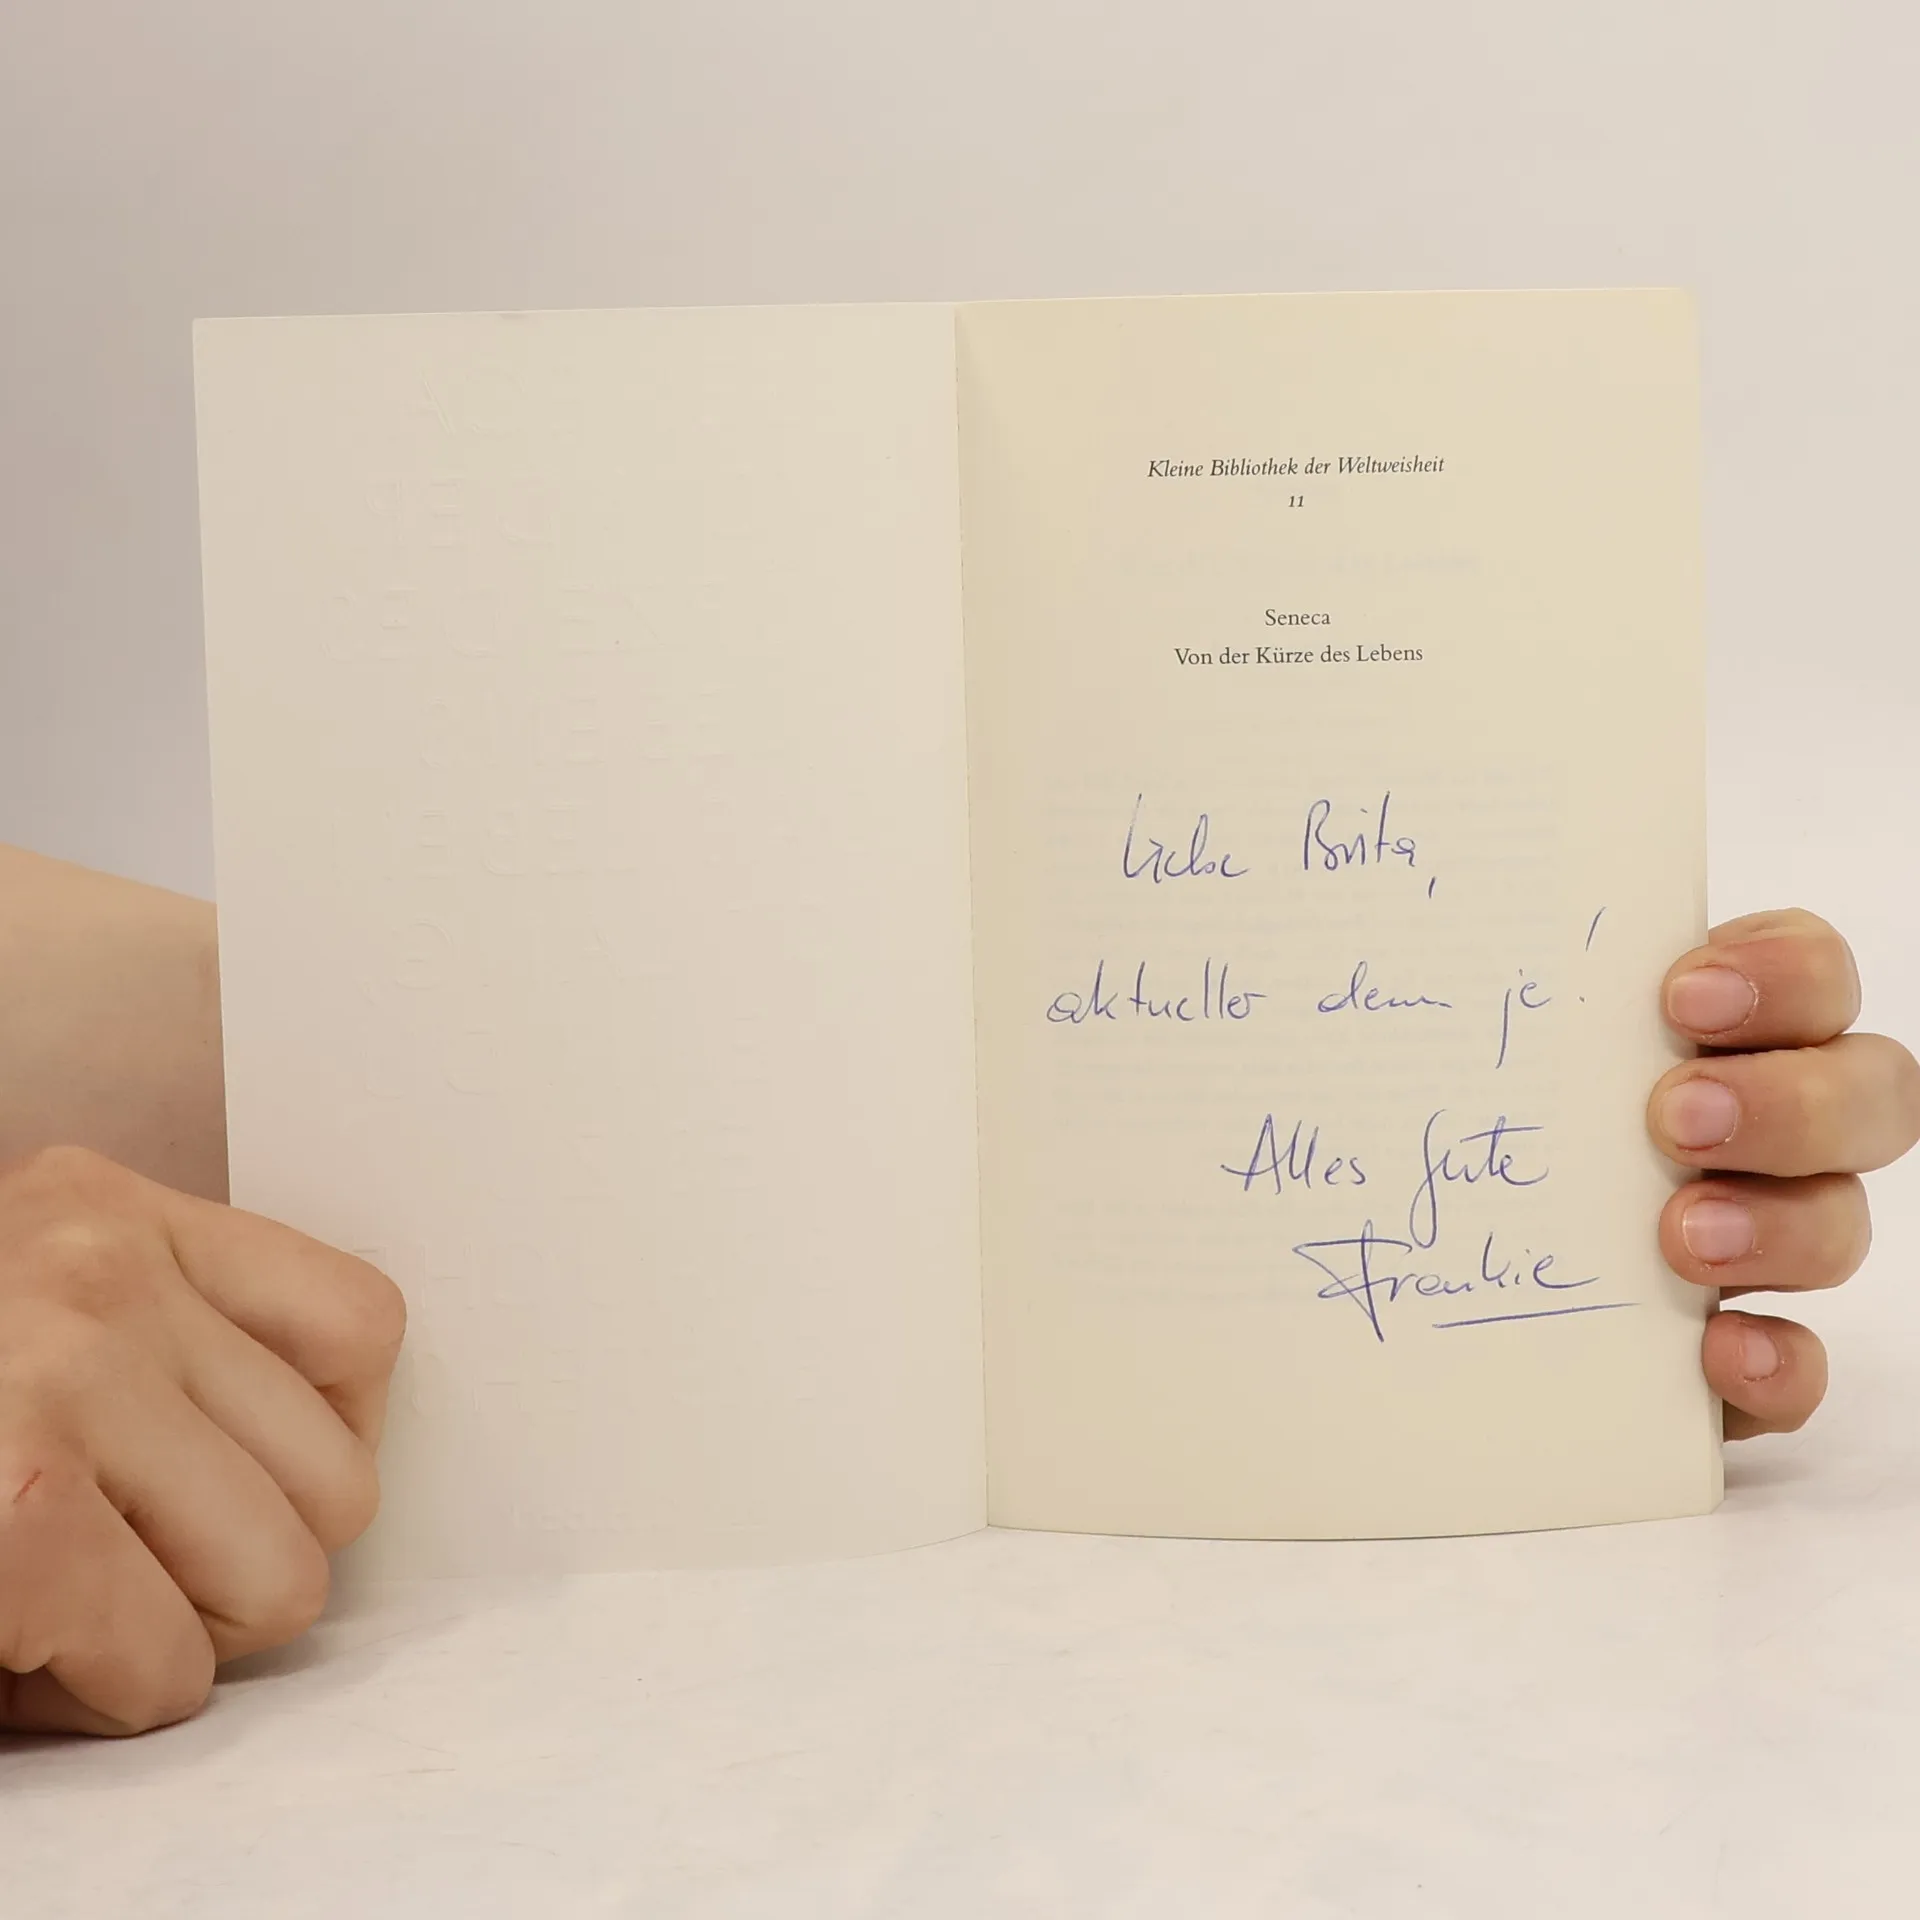 Kleine Bibliothek der Weltweisheit
11
Seneca
Von der Kürze des Lebens
Liebe Brita,
aktueller denn je!
Alles Gute
Frankie